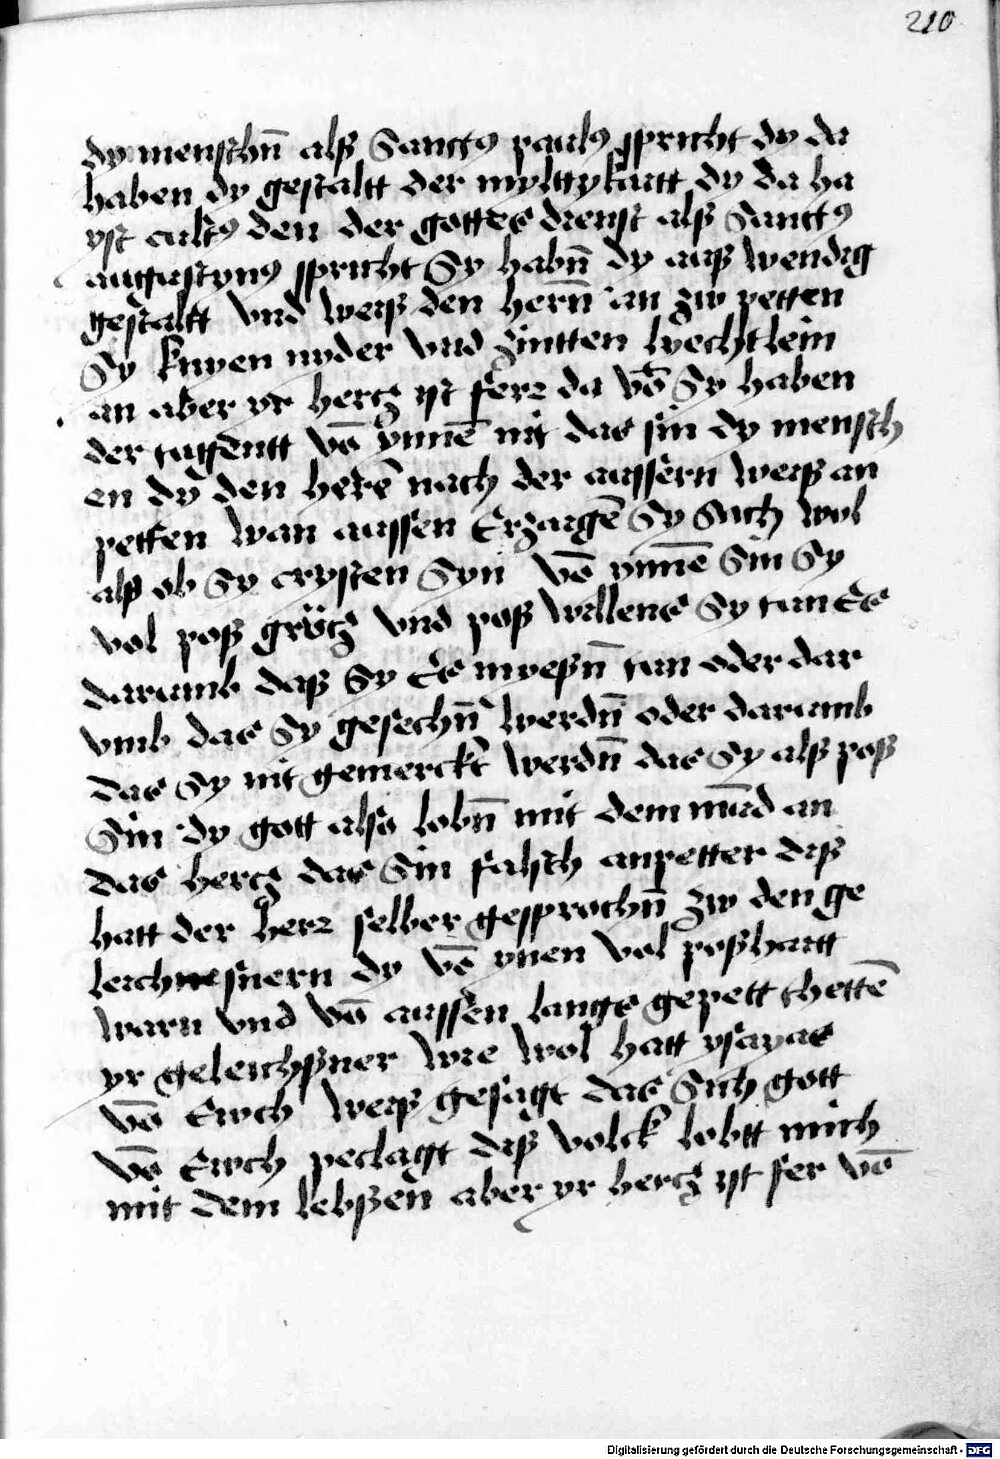 210
dy menschn̄ alß Sanctꝰ paulꝰ spricht dy da
haben dy gestaltt der mylttykaitt dy da ha
yst cultꝰ den der gottes dienst alß Sanctꝰ
augustynꝰ spricht Sy habn̄ dy auß wendig
gestaltt vnd weiß den hern̄ an zw petten
Sy knyen nyder vnd zintten lyechtlein
an aber yr hercz yst ferz da vō Sy haben
der tugentt vō ynnē nit das sin dy mensch
en dy den herē nach der aussern weiß an
petten wan aussen Erzaigē Sy Sich wol
alß ob Sy crysten Syn vō ynnē Sin Sy
vol poß vnd poß willens Sy tun Es
darumb daß Sy Es myeßn̄ tun oder dar
vmb das Sy gesechn̄ werdn̄ oder darumb
das Sy nit gemerckt werdn̄ das Sy alß poß
Sin dy gott also lobn̄ mit dem mūd an
das hercz das Sin falsch anpetter daß
hatt der herz selber gesprochn̄ zw den ge
leichnesnern dy vō ynen vol poßhaitt
warn vnd vō aussen langs gepett thettē
yr geleichßner wie wol hatt ysayas
vō Ewch weiß gesagt das Sich gott
vō Ewch peclagt daß volck lobtt mich
mit dem lebßen aber yr hercz yst fer vō
Digitalisierung gefördert durch die Deutsche Forschungsgemeinschaft - DFG